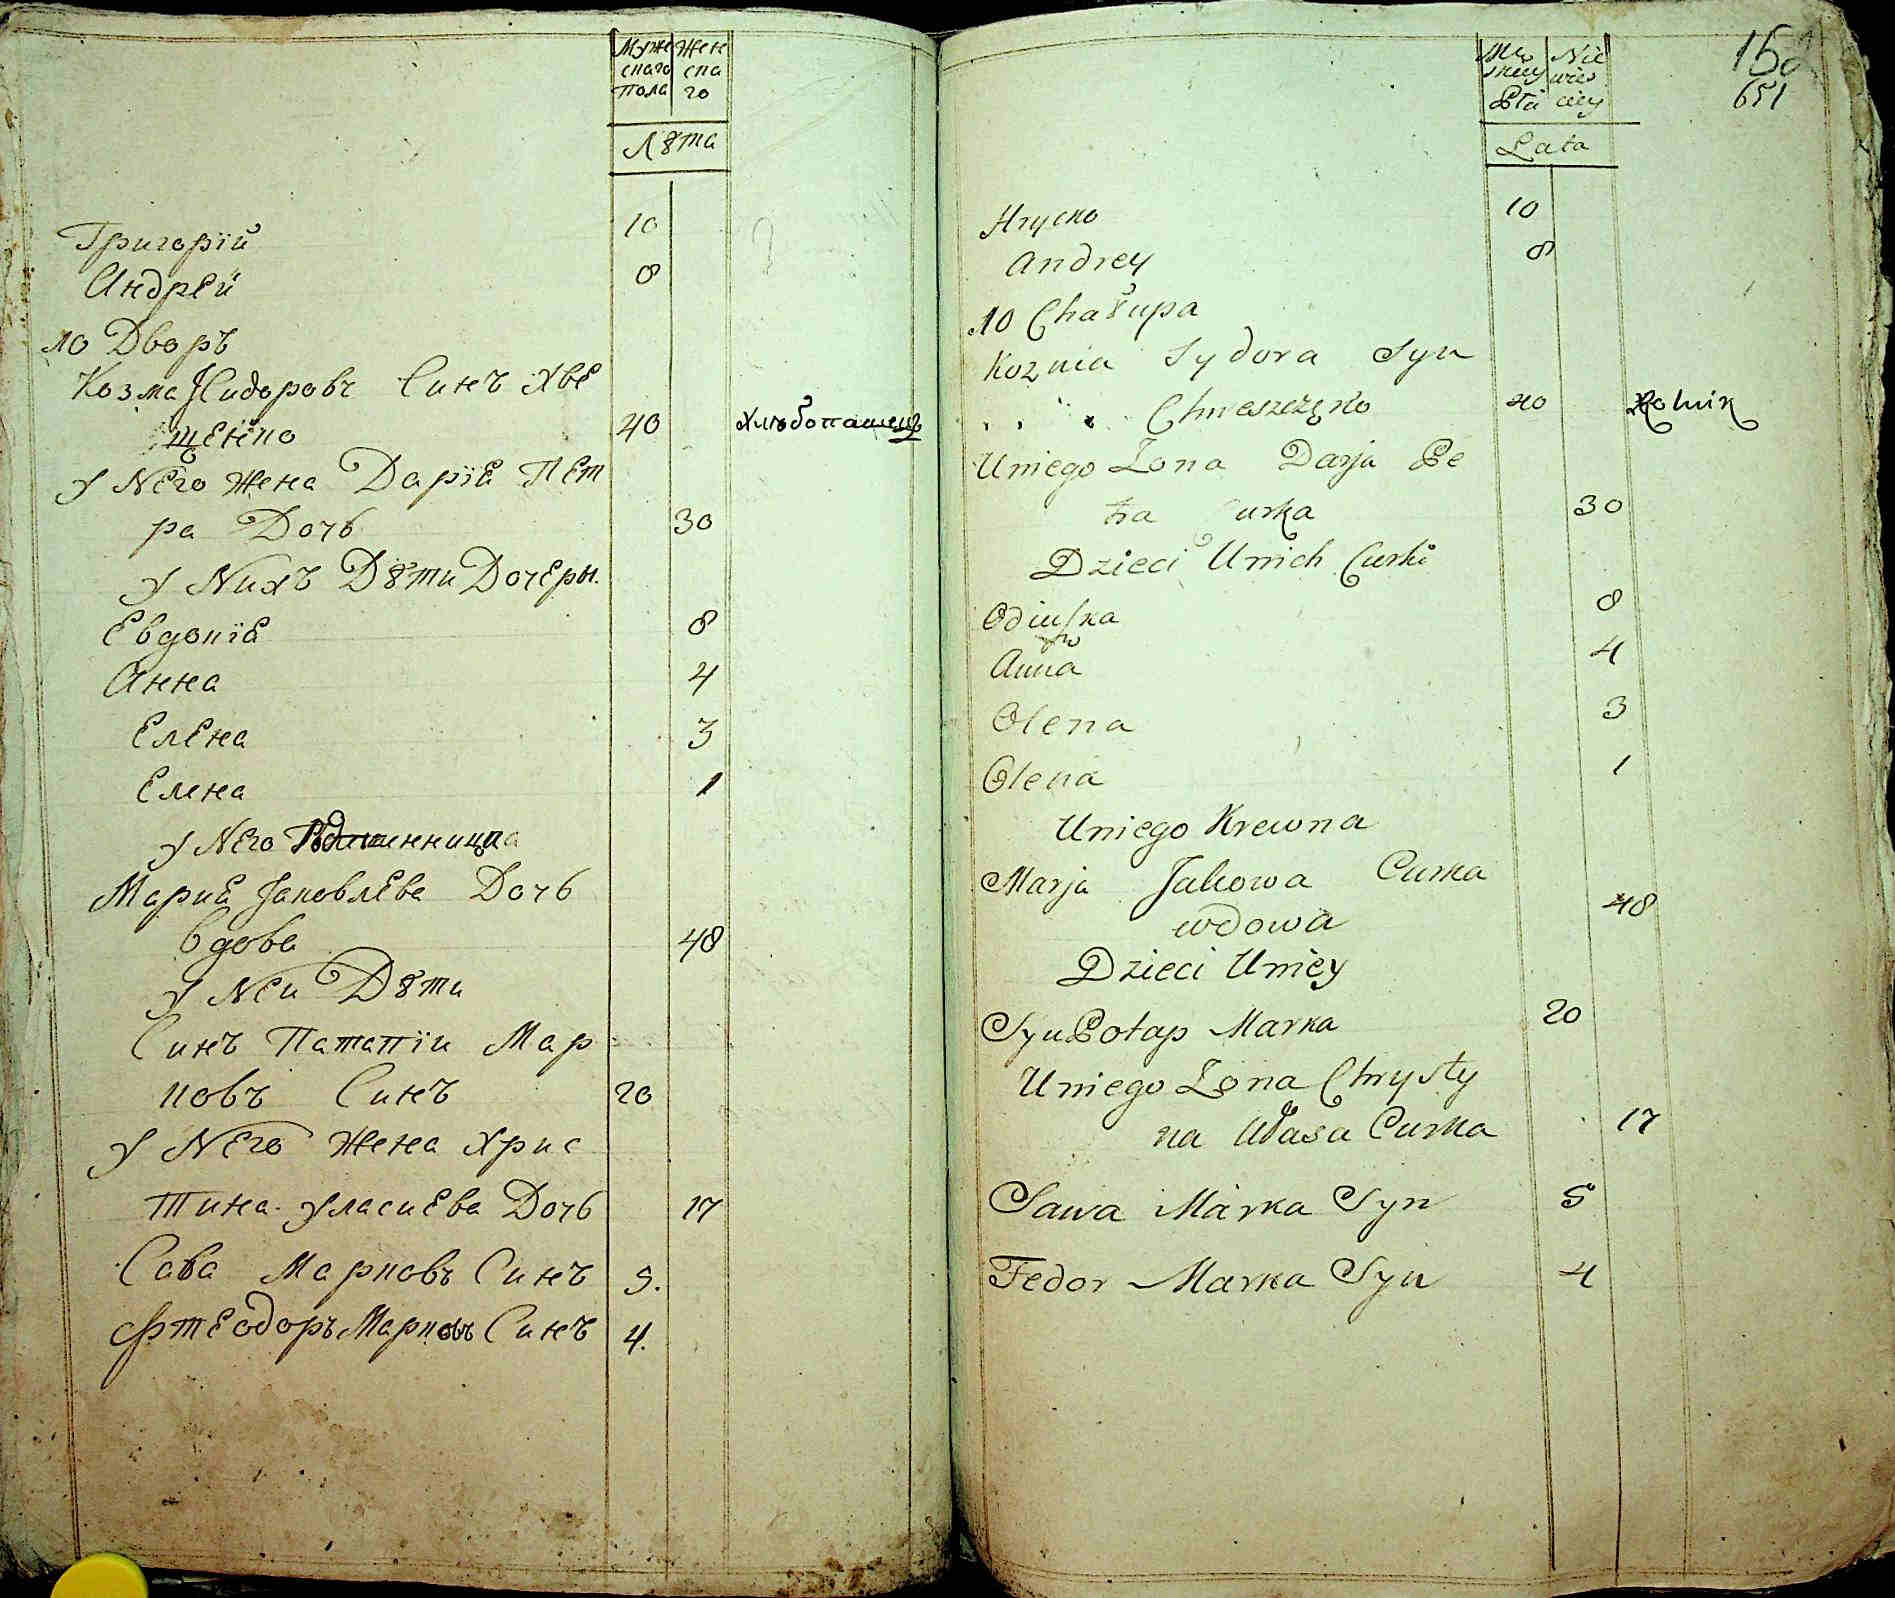 Муже Жен
скаго ска
Пола го
Лѣта
Григорїй 10
Андрей 8
10 Дворъ
Козма Сидоровъ Синъ Хве
щенко 40 Хлѣбопашецъ
У Него Жена Дарїѣ Пет
ра Дочь 30
у Нихъ Дѣти Дочеры.
Евдокїѣ 8
Анна 4
Елена 3
Елена 1
у Него
Мариѣ Яковлева Дочь
Вдова 48
у Неи Дѣти
Синъ Патапїи Мар
ковъ Синъ 20
у Него Жена Хрис
тина Уласиева Дочь 17
Сава Марковъ Синъ 5.
Фтеодоръ Марковъ Синъ 4.
651
Męs Nie
skiey wies
Płci ciey
Lata
Hrycko 10
Andrey 8
10 Chałupa
Kozma Sydora Syn
Chweszczęko 40 Rolnik
Uniego Zona Darja Pe
tra Curka 30
Dzieci Unich Curki
8
Anna 4
Olena 3
Olena 1
Uniego Krewna
Marja Jakowa Curka
wdowa 48
Dzieci Uniey
Syn Potap Marka 20
Uniego Zona Chrysty
na Własa Curka 17
Sawa Marka Syn 5
Fedor Marka Syn 4